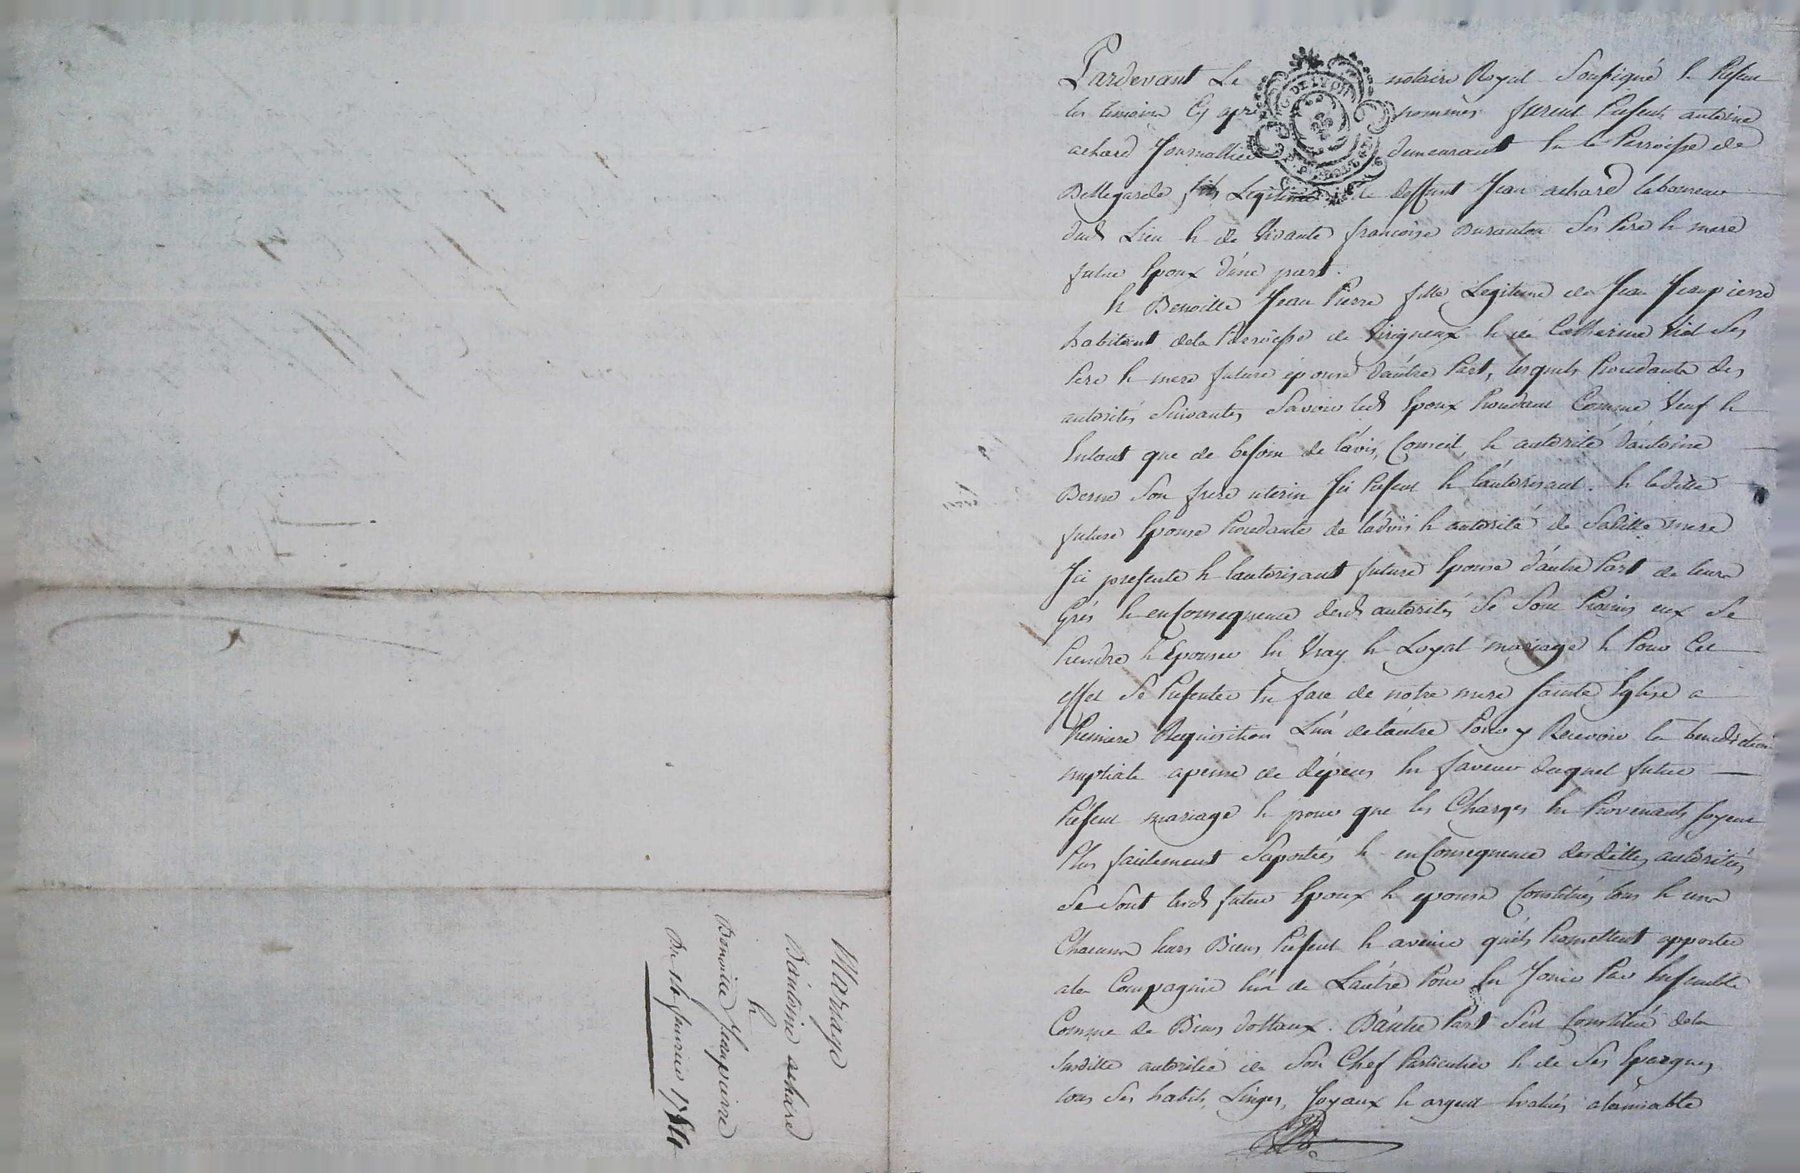 Pardevant Le notaire Royal Soussigné & Present
les temoins Cy apres nommés furent Presents antoine
achard Journallier demeurant En la Parroisse de
Bellegarde fils Legitime de deffunt Jean achard laboureur
dud. Lieu & de Vivante francoise Duranton Ses Pere & mere
futur Epoux d'une part.
& Benoitte Jean Pierre fille Legitime de Jean Jeanpierre
habitant de la Parroisse de Virigneux & de Catherine Vial Ses
Pere & mere future épouse d'autre Part, lesquels Procedants des
autorités Suivantes, Savoir led. Epoux Procedant Comme Veuf &
Entant que de besoin de l'avis, Conseil, & autorité d'antoine
Berne Son frere uterin Ici Present & l'autorisant. & laditte
future Epouse Procedante de l'advis & autorité de Saditte mere
Ici presente & l'autorisant future Epouse d'autre Part de leurs
Grés & en Consequence desd. autorités Se Sont Promis eux Se
Prendre & Epouser En Vray & Loyal mariage & Pour Cet
effet Se Presenter En face de notre mere Sainte Eglise a
Premiere Requisition L'un de l'autre Pour y Recevoir la benediction
nuptiale a peine de dépens En faveur duquel futur
Présent mariage & pour que les Charges En Provenants Soyent
Plus facilement Suportées & en Consequence desdittes autorités
Se Sont lesd. futurs Epoux & epouse Constitués tous & une
Chacuns leurs Biens Présents & avenir qu'ils Promettent apporter
a la Compagnie l'un de L'autre Pour En Jouir Par Ensemble
Comme de Biens dottaux. D'autre Part S'est Constitué de la
Susditte autorité de Son Chef Particulier & de Ses Epargnes
tous Ses habits, Linges, Joyaux & argent Evalués a l'amiable
Mariage
D'antoine achard
&
Benoitte Jeanpierre
Du fevrier